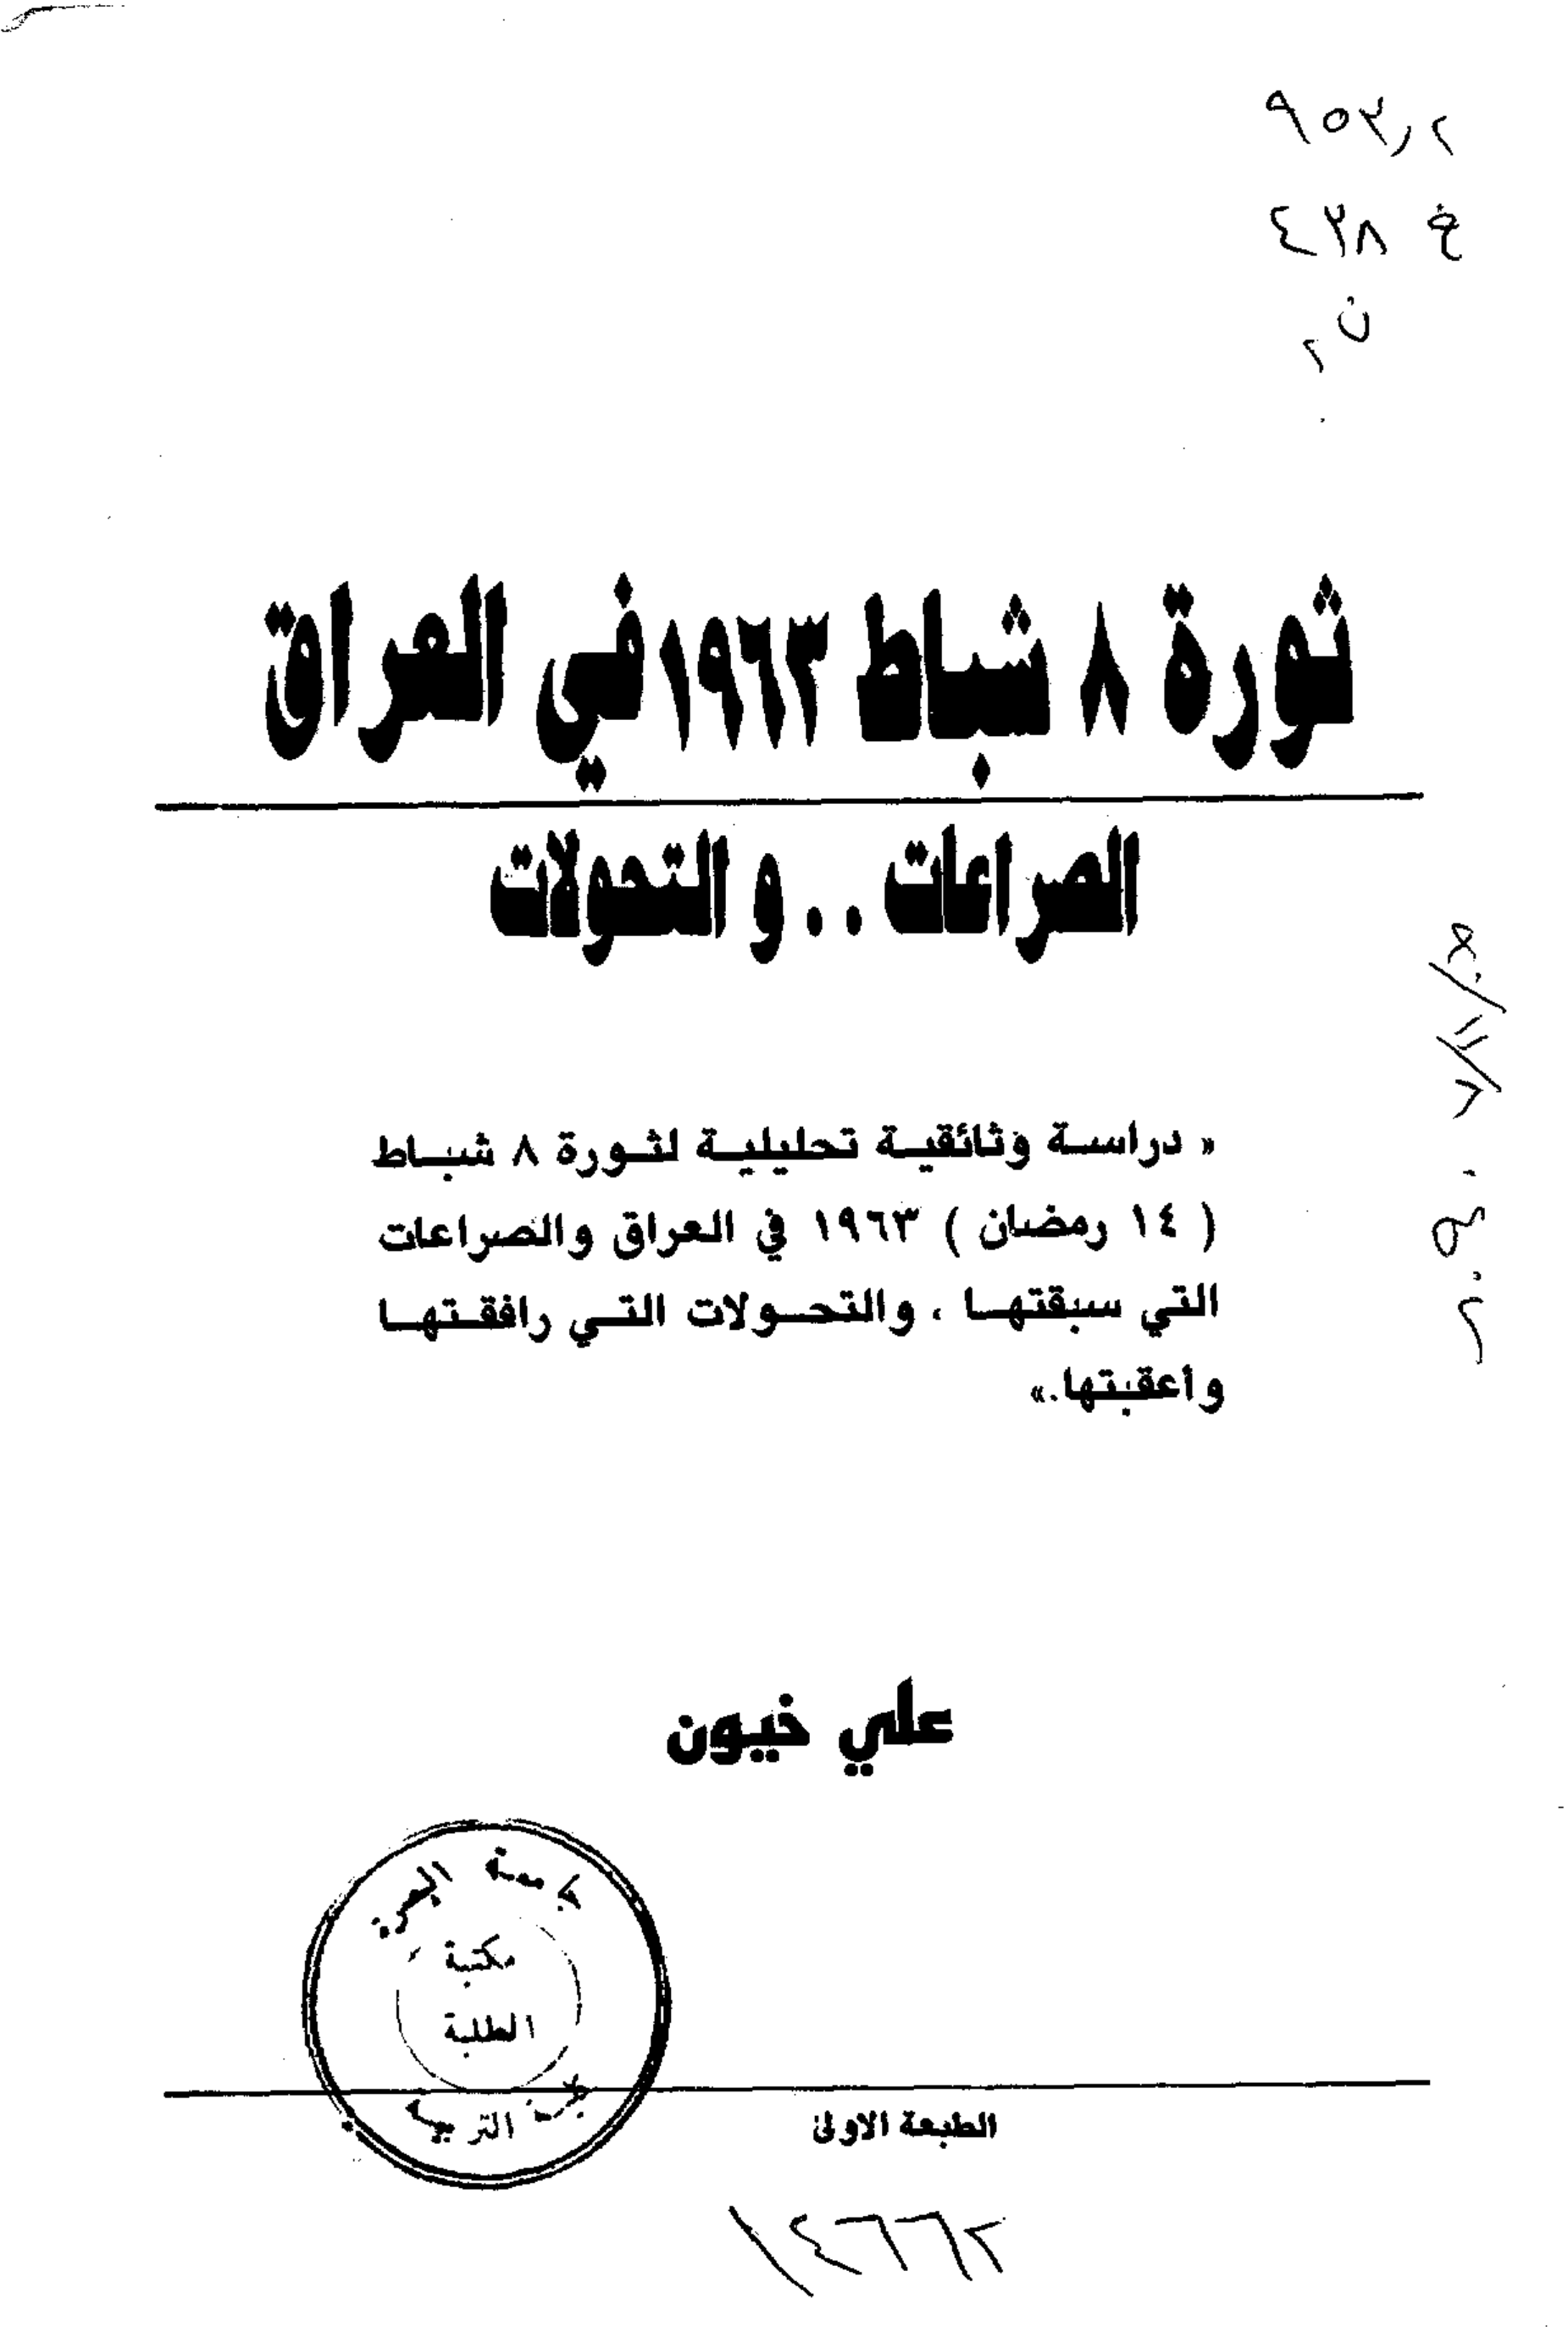 ٩٥٣,٢
خ ٤٢٨
ن
٢
ثورة ٨ شباط ١٩٦٣ في العراق
الصراعات . . والتحولات
« دراسة وثائقية تحليلية لثورة ٨ شباط
( ١٤ رمضان ) ١٩٦٣ في العراق والصراعات
التي سبقتها ، والتحولات التي رافقتها
واعقبتها.»
علي خيون
جامعة البصرة
مكتبة
الطلبة
كلية التربية
الطبعة الاولى
١٤٦٦٢